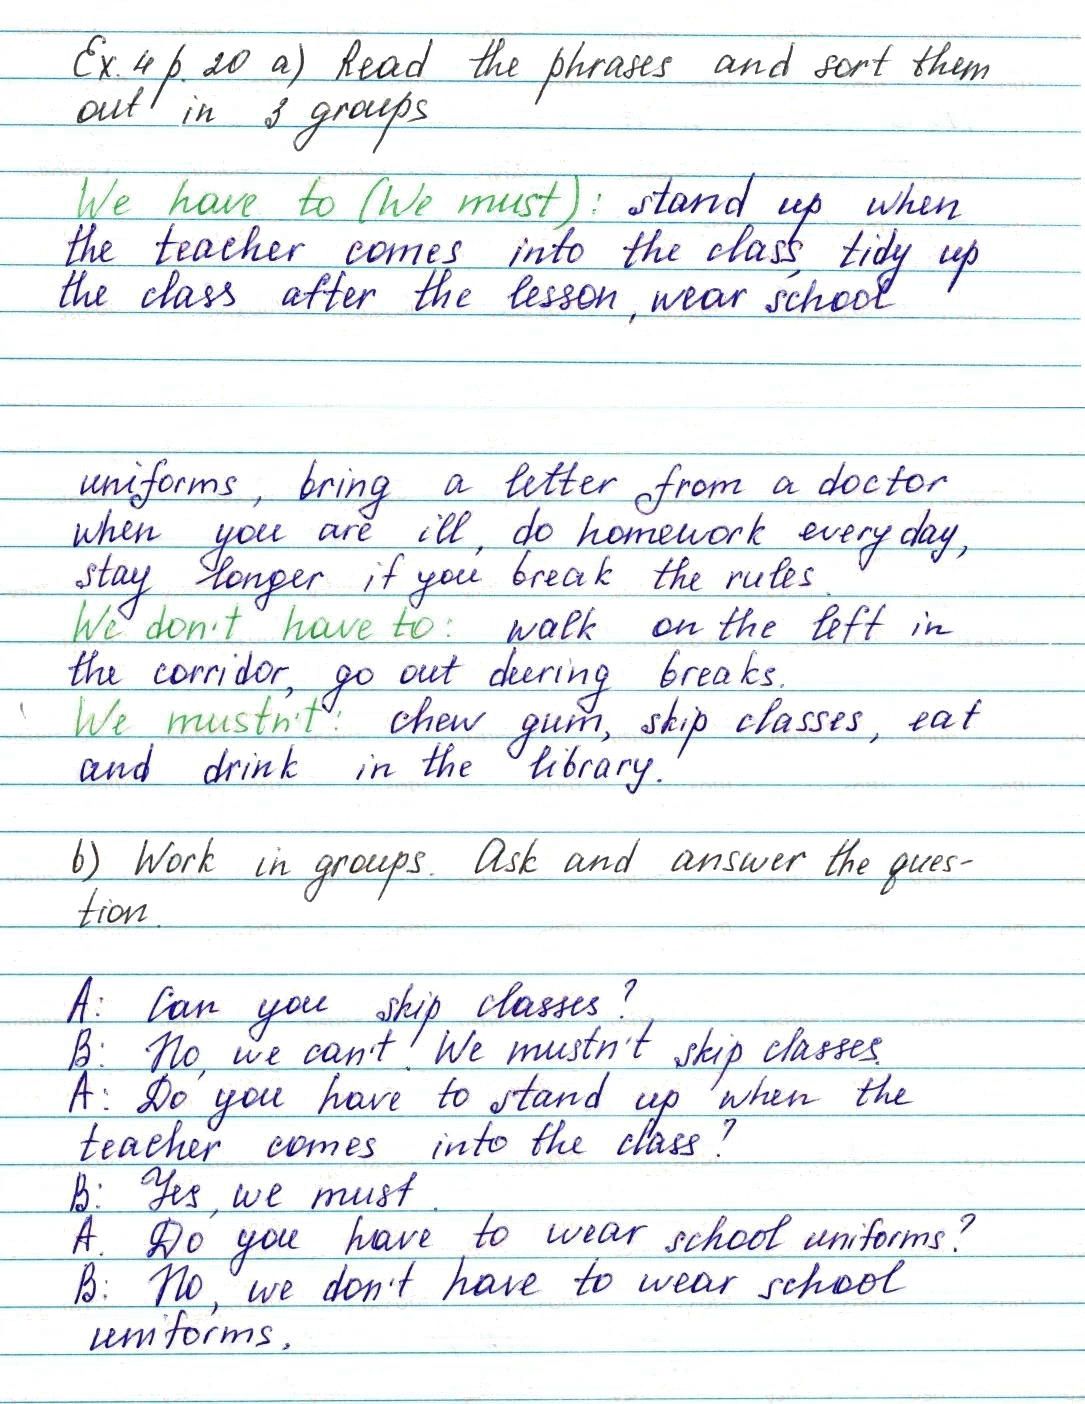 Ex. 4 p. 20 a) Read the phrases and sort them
out in 3 groups
We have to (We must): stand up when
the teacher comes into the class, tidy up
the class after the lesson, wear school
uniforms, bring a letter from a doctor
when you are ill, do homework every day,
stay longer if you break the rules.
We don't have to: walk on the left in
the corridor, go out during breaks.
We mustn't: chew gum, skip classes, eat
and drink in the library.
b) Work in groups. Ask and answer the ques-
tion.
A: Can you skip classes?
B: No, we can't. We mustn't skip classes.
A: Do you have to stand up when the
teacher comes into the class?
B: Yes, we must.
A. Do you have to wear school uniforms?
B: No, we don't have to wear school
uniforms.